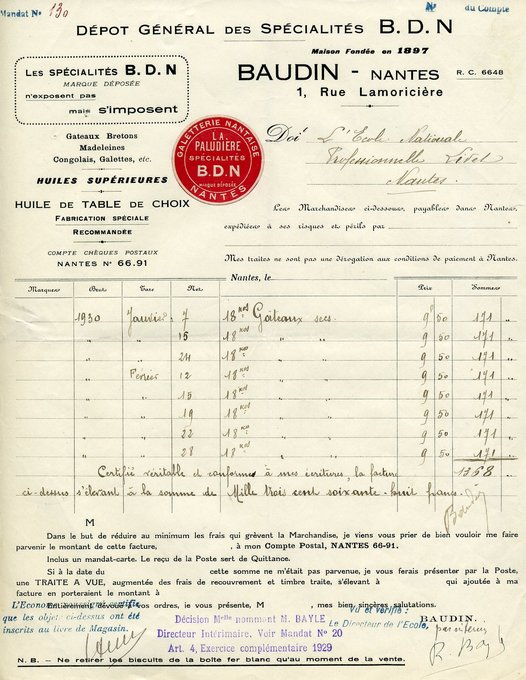 Mandat Nº 130
Nº du Compte
DÉPOT GÉNÉRAL DES SPÉCIALITÉS B. D. N
Maison Fondée en 1897
LES SPÉCIALITÉS B. D. N
MARQUE DÉPOSÉE
n'exposent pas
mais s'imposent
BAUDIN - NANTES
R. C. 6648
1, Rue Lamoricière
Gateaux Bretons
Madeleines
Congolais, Galettes, etc.
HUILES SUPÉRIEURES
HUILE DE TABLE DE CHOIX
FABRICATION SPÉCIALE
RECOMMANDÉE
COMPTE CHÈQUES POSTAUX
NANTES Nº 66.91
GALETTERIE NANTAISE
LA
PALUDIÈRE
SPÉCIALITÉS
B.D.N
MARQUE DÉPOSÉE
NANTES
Doit L'Ecole Nationale
Professionnelle Livet
Nantes
Les Marchandises ci-dessous, payables dans Nantes,
expédiées à ses risques et périls par
Mes traites ne sont pas une dérogation aux conditions de paiement à Nantes.
Nantes, le
Marques Brut Tare Net Prix Sommes
1930 Janvier 7 18 kos Gâteaux secs 9 50 171
" " 15 18 kos " " 9 50 171
" " 24 18 kos " " 9 50 171
" Février 12 18 kos " " 9 50 171
" " 15 18 kos " " 9 50 171
" " 19 18 kos " " 9 50 171
" " 22 18 kos " " 9 50 171
" " 28 18 kos " " 9 50 171
Certifié véritable et conforme à mes écritures, la facture 1368
ci-dessus s'élevant à la somme de Mille trois cent soixante-huit francs.
Baudin
M
Dans le but de réduire au minimum les frais qui grèvent la Marchandise, je viens vous prier de bien vouloir me faire
parvenir le montant de cette facture, , à mon Compte Postal, NANTES 66-91.
Inclus un mandat-carte. Le reçu de la Poste sert de Quittance.
Si à la date du cette somme ne m'était pas parvenue, je vous ferais présenter par la Poste,
une TRAITE A VUE, augmentée des frais de recouvrement et timbre traite, s'élevant à qui ajoutée à ma
facture en porteraient le montant à
Entièrement dévoué à vos ordres, je vous présente, M , mes bien sincères salutations.
BAUDIN.
L'Econome soussigné certifie
que les objets ci-dessus ont été
inscrits au livre de Magasin.
Décision Melle nommant M. BAYLE
Directeur Intérimaire. Voir Mandat Nº 20
Art. 4, Exercice complémentaire 1929
Vu et vérifié :
Le Directeur de l'Ecole,
par intérim
R. Bayle
N. B. - Ne retirer les biscuits de la boîte fer blanc qu'au moment de la vente.